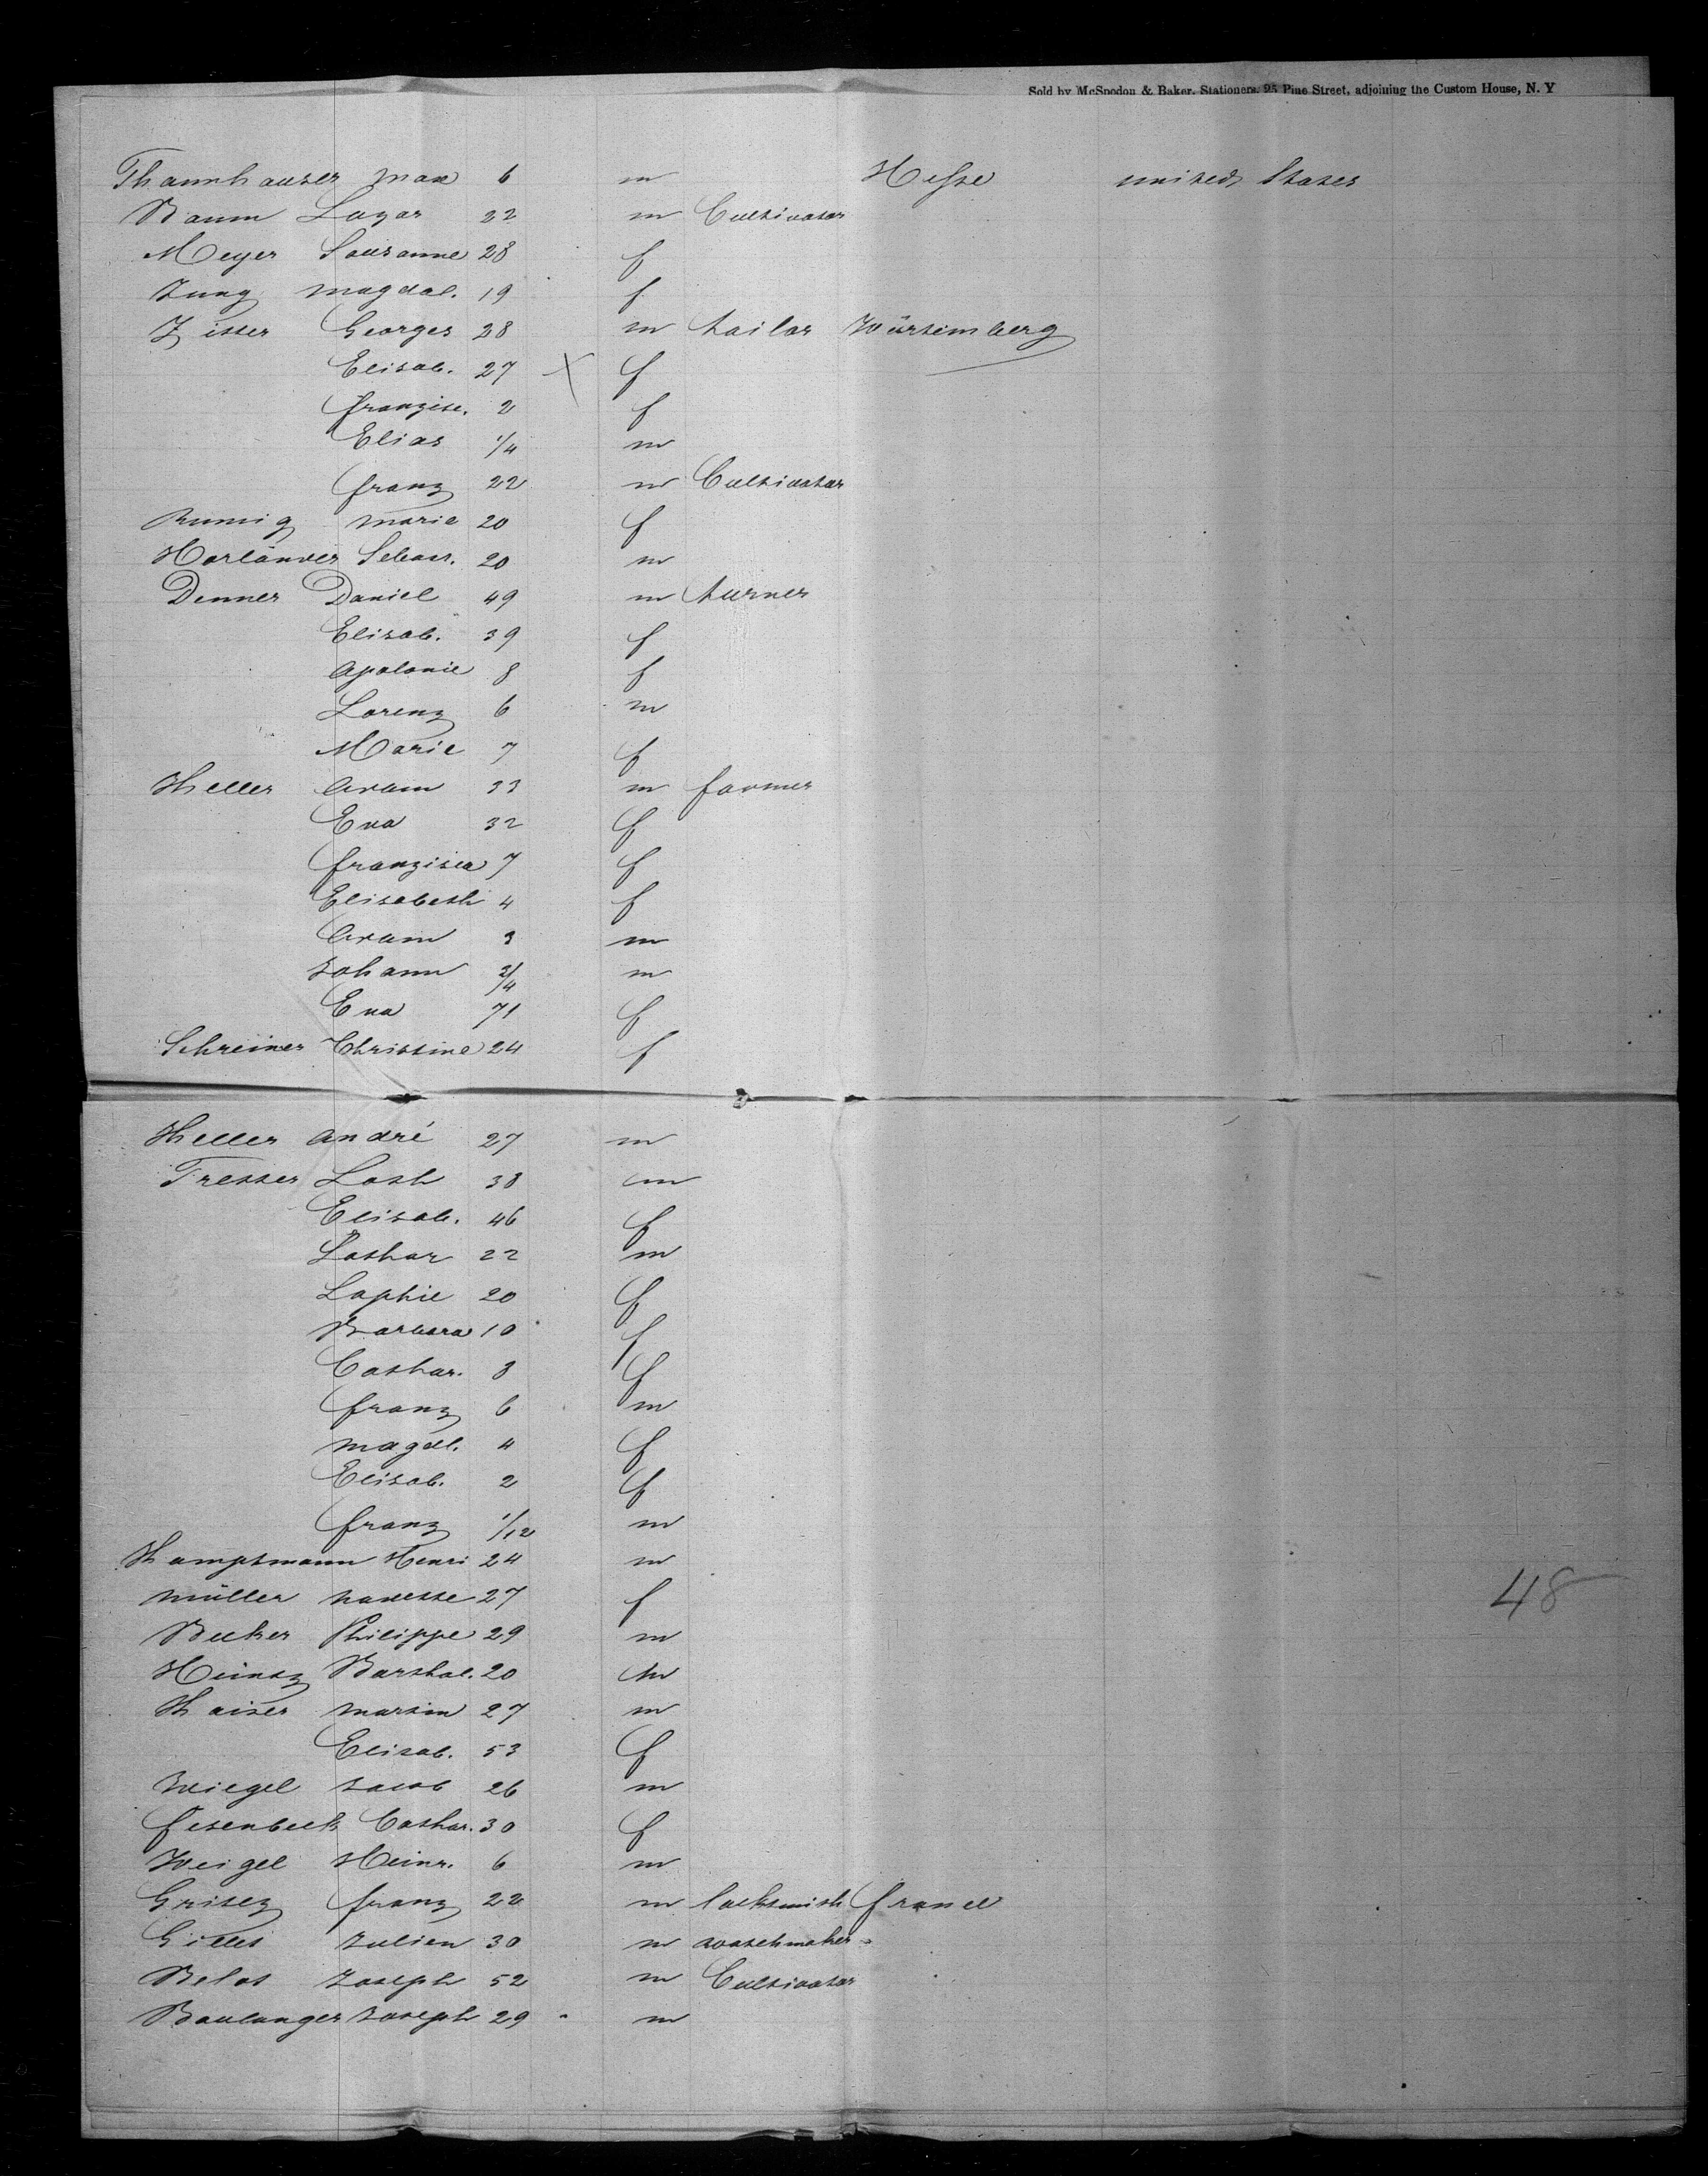 Sold by McSpedon & Baker, Stationers, 25 Pine Street, adjoining the Custom House, N. Y
Thannhauser max 6 m Hesse united States
Baum Lazar 22 m Cultivator
Meyer Sousanne 28 f
Jung magdal. 19 f
Zitter Georges 28 m tailor Würtemberg
Elisab. 27 X f
franzisc. 2 f
Elias 1/4 m
franz 22 m Cultivator
marie 20 f
Horländer Sebast. 20 m
Denner Daniel 49 m turner
Elisab. 39 f
apolonie 8 f
Lorenz 6 m
Marie 7 f
Heller Adam 33 m farmer
Eva 32 f
franzisca 7 f
Elisabeth 4 f
Adam 3 m
Johann 3/4 m
Eva 71 f
Schreiner Christine 24 f
Heller André 27 m
Tretter 38 m
Elisab. 46 f
Lothar 22 m
Sophie 20 f
Barbara 10 f
Cathar. 8 f
franz 6 m
magdl. 4 f
Elisab. 2 f
franz 1/12 m
Hamptmann Henri 24 m
müller nanette 27 f
Becker Philippe 29 m
Heintz Barthol. 20 m
Kaiser martin 27 m
Elisab. 53 f
Weigel Jacob 26 m
fesenbeck Cathar. 30 f
Weigel Heinr. 6 m
Grisez franz 22 m locksmith france
Gilles Julien 30 m watchmaker
Belot Joseph 52 m Cultivator
Boulanger Joseph 29 m
48